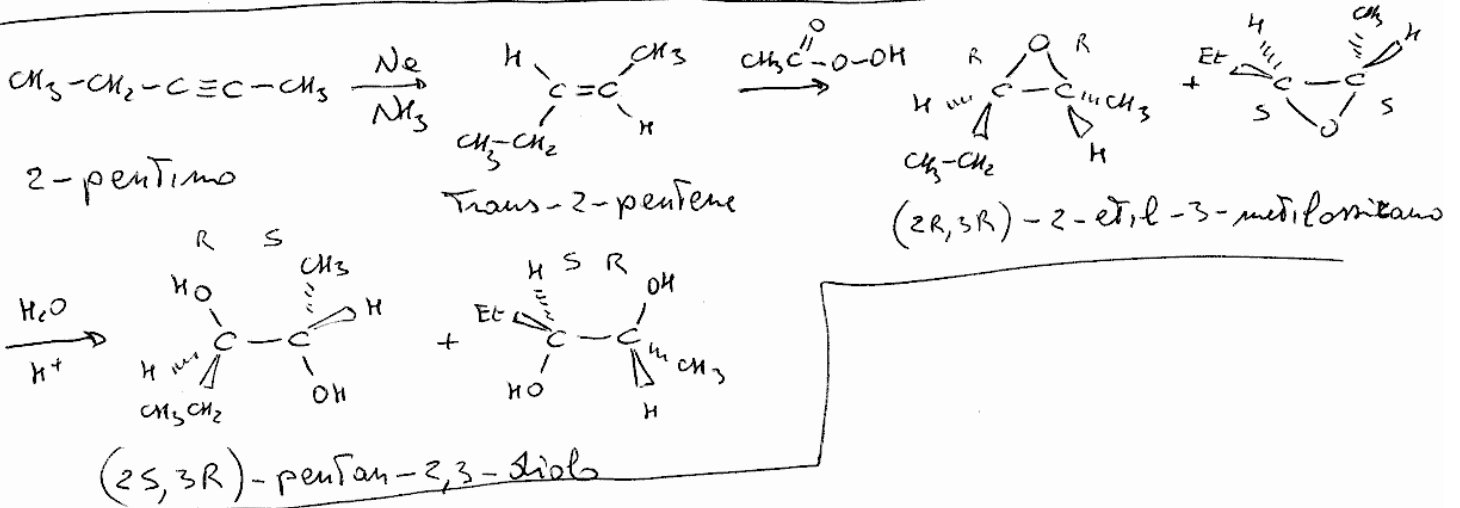 CH3-CH2-C≡C-CH3 Na NH3 H CH3 C=C CH3-CH2 H CH3C-O-OH O R O R H C-C CH3 CH3-CH2 H + H Et C-C CH3 H S O S
2-pentino
Trans-2-pentene
(2R,3R)-2-etil-3-metilossirano
H2O H+ R S HO CH3 C-C H H CH3CH2 OH + H S R Et OH C-C HO CH3 H
(2S,3R)-pentan-2,3-diolo